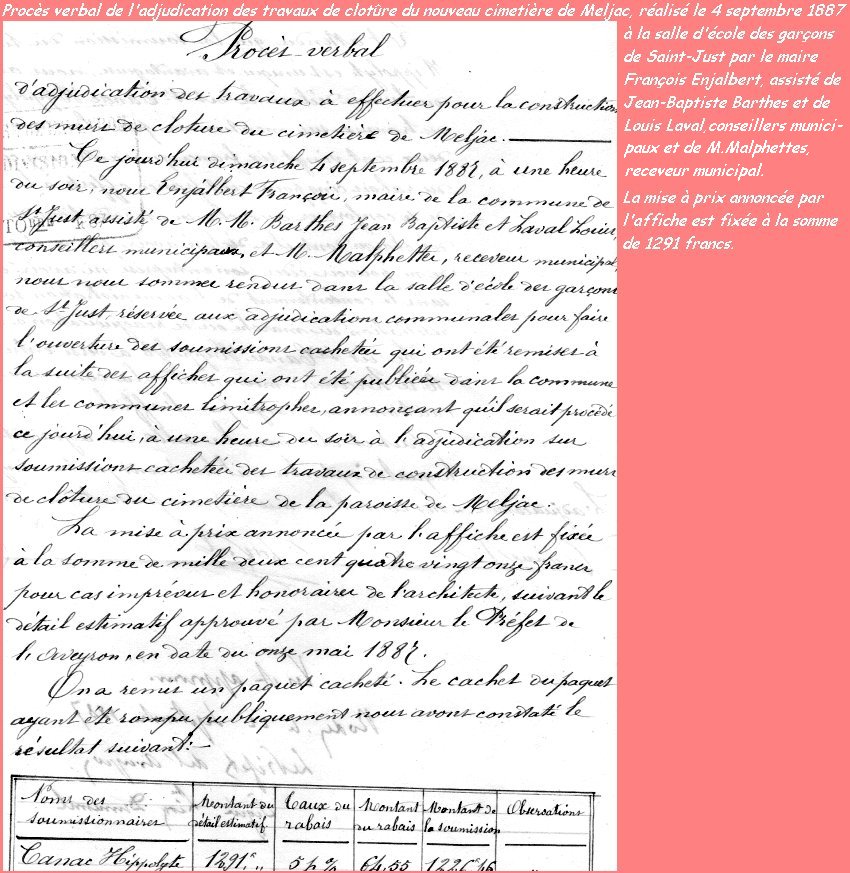 Procès verbal de l'adjudication des travaux de clotûre du nouveau cimetière de Meljac, réalisé le 4 septembre 1887
à la salle d'école des garçons
de Saint-Just par le maire
François Enjalbert, assisté de
Jean-Baptiste Barthes et de
Louis Laval,conseillers munici-
paux et de M.Malphettes,
receveur municipal.
La mise à prix annoncée par
l'affiche est fixée à la somme
de 1291 francs.
Procès-verbal
d'adjudication des travaux à effectuer pour la construction
des murs de cloture du cimetière de Meljac.
Ce jourd'hui dimanche 4 septembre 1887, à une heure
du soir, nous Enjalbert François, maire de la commune de
St Just assisté de M.M. Barthes Jean Baptiste et Laval Louis,
conseillers municipaux, et M. Malphettes, receveur municipal,
nous nous sommes rendus dans la salle d'école des garçons
de St Just réservée aux adjudications communales pour faire
l'ouverture des soumissions cachetées qui ont été remises à
la suite des affiches qui ont été publiées dans la commune
et les communes limitrophes, annonçant qu'il serait procédé
ce jourd'hui, à une heure du soir à l'adjudication sur
soumissions cachetées des travaux de construction des murs
de clôture du cimetière de la paroisse de Meljac.
La mise à prix annoncée par l'affiche est fixée
à la somme de mille deux cent quatre vingt onze francs
pour cas imprévus et honoraires de l'architecte, suivant le
détail estimatif approuvé par Monsieur le Préfet de
l'Aveyron, en date du onze mai 1887.
On a remis un paquet cacheté. Le cachet du paquet
ayant été rompu publiquement nous avons constaté le
résultat suivant:
Noms des soumissionnaires Montant du détail estimatif Taux du rabais Montant du rabais Montant de la soumission Observations
Canac Hippolyte 1291 " 5 % 64.55 "